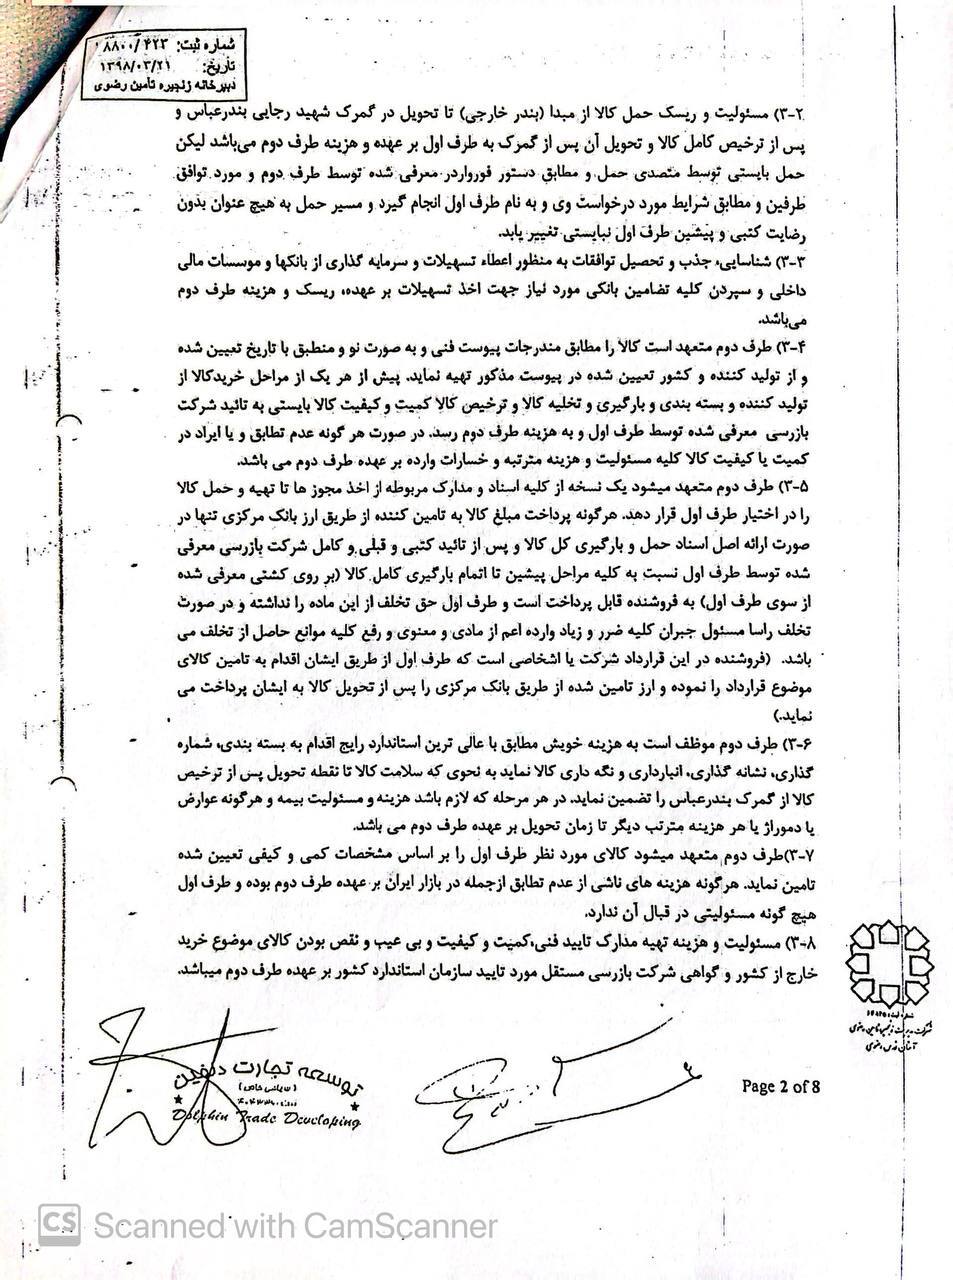 شماره ثبت: ۸۸۰۰/۴۲۳
تاریخ: ۱۳۹۸/۰۳/۲۱
دبیرخانه زنجیره تامین رضوی
۳-۲) مسئولیت و ریسک حمل کالا از مبدا (بندر خارجی) تا تحویل در گمرک شهید رجایی بندرعباس و
پس از ترخیص کامل کالا و تحویل آن پس از گمرک به طرف اول بر عهده و هزینه طرف دوم می‌باشد لیکن
حمل بایستی توسط متصدی حمل و مطابق دستور فورواردر معرفی شده توسط طرف دوم و مورد توافق
طرفین و مطابق شرایط مورد درخواست وی و به نام طرف اول انجام گیرد و مسیر حمل به هیچ عنوان بدون
رضایت کتبی و پیشین طرف اول نبایستی تغییر یابد.
۳-۳) شناسایی، جذب و تحصیل توافقات به منظور اعطاء تسهیلات و سرمایه گذاری از بانکها و موسسات مالی
داخلی و سپردن کلیه تضامین بانکی مورد نیاز جهت اخذ تسهیلات بر عهده، ریسک و هزینه طرف دوم
می‌باشد.
۳-۴) طرف دوم متعهد است کالا را مطابق مندرجات پیوست فنی و به صورت نو و منطبق با تاریخ تعیین شده
و از تولید کننده و کشور تعیین شده در پیوست مذکور تهیه نماید. پیش از هر یک از مراحل خریدکالا از
تولید کننده و بسته بندی و بارگیری و تخلیه کالا و ترخیص کالا کمیت و کیفیت کالا بایستی به تائید شرکت
بازرسی معرفی شده توسط طرف اول و به هزینه طرف دوم رسد. در صورت هر گونه عدم تطابق و یا ایراد در
کمیت یا کیفیت کالا کلیه مسئولیت و هزینه مترتبه و خسارات وارده بر عهده طرف دوم می باشد.
۳-۵) طرف دوم متعهد میشود یک نسخه از کلیه اسناد و مدارک مربوطه از اخذ مجوز ها تا تهیه و حمل کالا
را در اختیار طرف اول قرار دهد. هرگونه پرداخت مبلغ کالا به تامین کننده از طریق ارز بانک مرکزی تنها در
صورت ارائه اصل اسناد حمل و بارگیری کل کالا و پس از تائید کتبی و قبلی و کامل شرکت بازرسی معرفی
شده توسط طرف اول نسبت به کلیه مراحل پیشین تا اتمام بارگیری کامل کالا (بر روی کشتی معرفی شده
از سوی طرف اول) به فروشنده قابل پرداخت است و طرف اول حق تخلف از این ماده را نداشته و در صورت
تخلف راسا مسئول جبران کلیه ضرر و زیاد وارده اعم از مادی و معنوی و رفع کلیه موانع حاصل از تخلف می
باشد. (فروشنده در این قرارداد شرکت یا اشخاصی است که طرف اول از طریق ایشان اقدام به تامین کالای
موضوع قرارداد را نموده و ارز تامین شده از طریق بانک مرکزی را پس از تحویل کالا به ایشان پرداخت می
نماید.)
۳-۶) طرف دوم موظف است به هزینه خویش مطابق با عالی ترین استاندارد رایج اقدام به بسته بندی، شماره
گذاری، نشانه گذاری، انبارداری و نگه داری کالا نماید به نحوی که سلامت کالا تا نقطه تحویل پس از ترخیص
کالا از گمرک بندرعباس را تضمین نماید. در هر مرحله که لازم باشد هزینه و مسئولیت بیمه و هرگونه عوارض
یا دموراژ یا هر هزینه مترتب دیگر تا زمان تحویل بر عهده طرف دوم می باشد.
۳-۷)طرف دوم متعهد میشود کالای مورد نظر طرف اول را بر اساس مشخصات کمی و کیفی تعیین شده
تامین نماید. هرگونه هزینه های ناشی از عدم تطابق ازجمله در بازار ایران بر عهده طرف دوم بوده و طرف اول
هیچ گونه مسئولیتی در قبال آن ندارد.
۳-۸) مسئولیت و هزینه تهیه مدارک تایید فنی،کمیت و کیفیت و بی عیب و نقص بودن کالای موضوع خرید
خارج از کشور و گواهی شرکت بازرسی مستقل مورد تایید سازمان استاندارد کشور بر عهده طرف دوم میباشد.
شرکت مدیریت زنجیره تامین رضوی
آستان قدس رضوی
توسعه تجارت دلفین
(سهامی خاص)
Dolphin Trade Developing
Page 2 of 8
CS Scanned with CamScanner